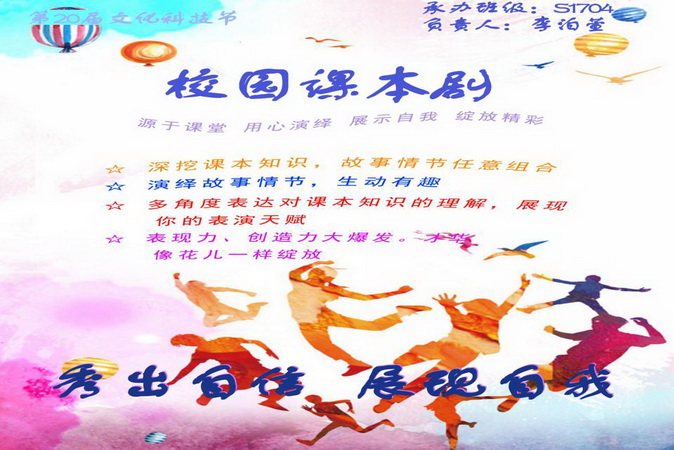 第20届文化科技节
承办班级：S1704
负责人：李泊萱
校园课本剧
源于课堂 用心演绎 展示自我 绽放精彩
☆ 深挖课本知识，故事情节任意组合
☆ 演绎故事情节，生动有趣
☆ 多角度表达对课本知识的理解，展现
你的表演天赋
☆ 表现力、创造力大爆发。才华
像花儿一样绽放
秀出自信 展现自我